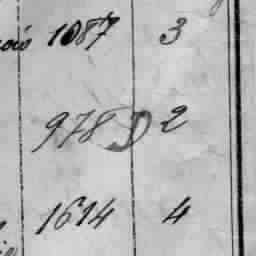 1087 3
978 D 2
1614 4